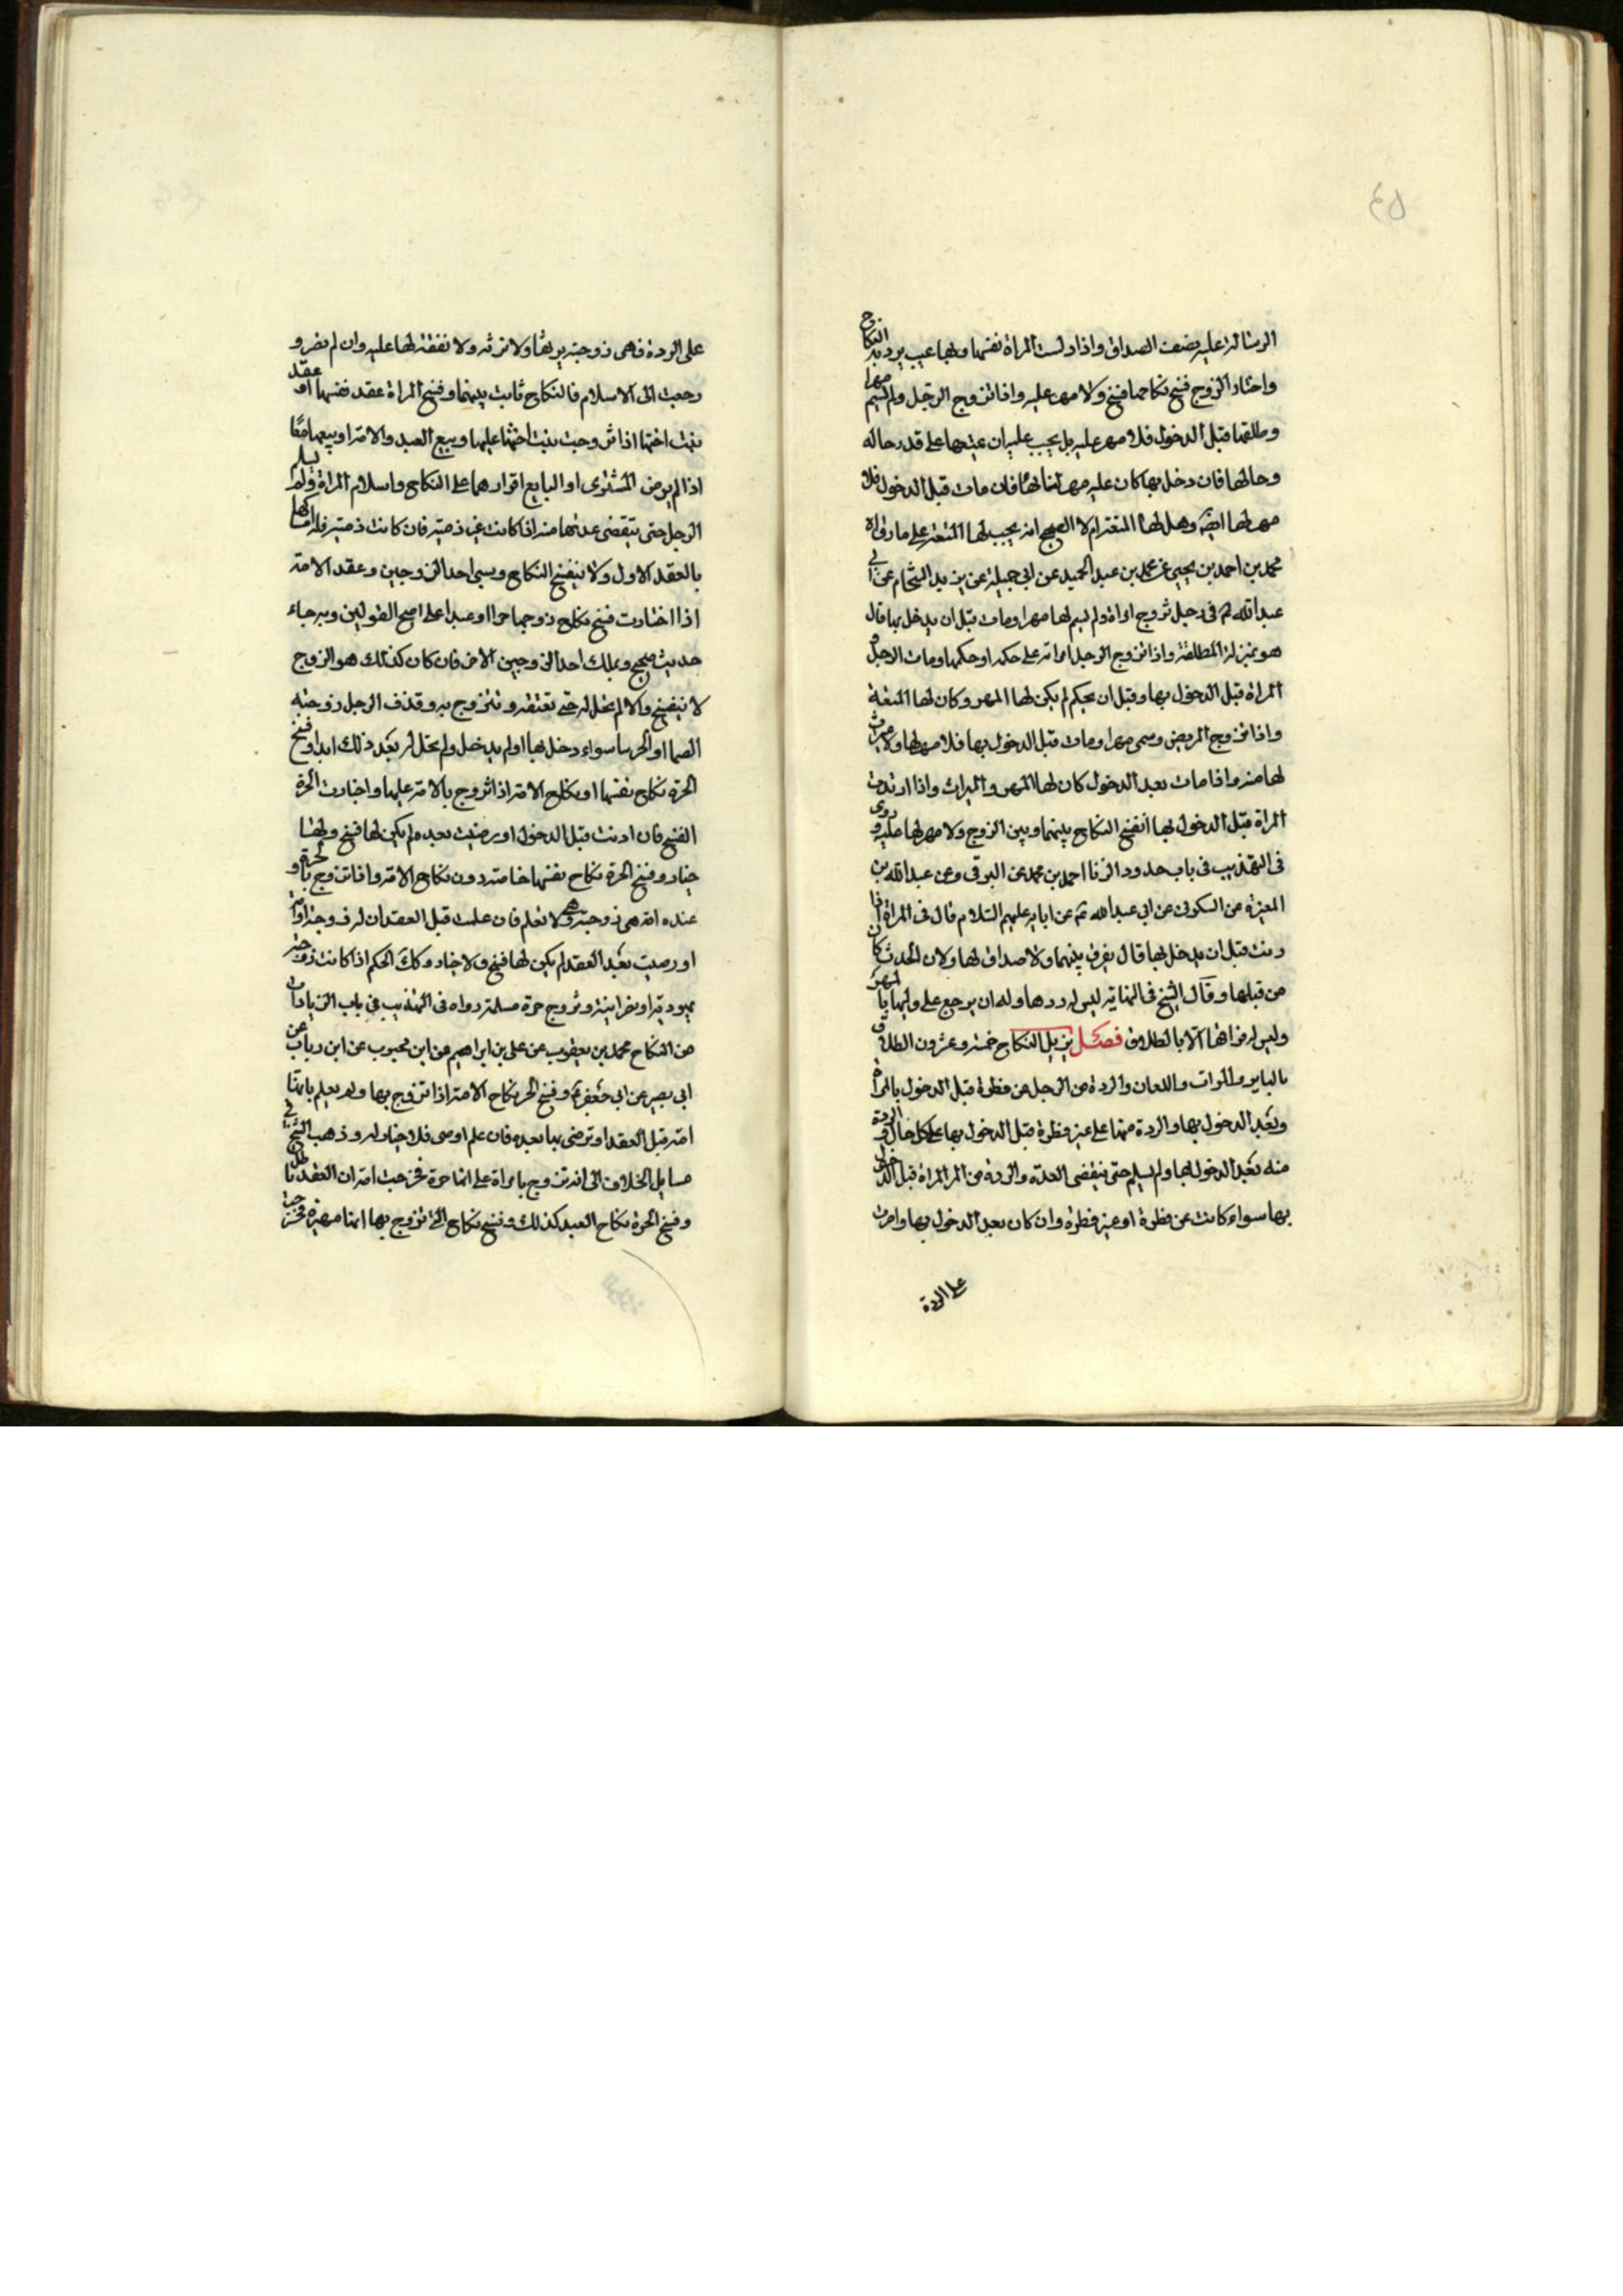 ٤٥
الرسالة عليه نصف الصداق واذا دلست المراة نفسها وبها عيب يرد به النكاح
واختار الزوج فسخ نكاحها فسخ ولا مهر عليه واذا تزوج الرجل ولم يسم مهرا
وطلقها قبل الدخول فلا مهر عليه بل يجب عليه ان يمتعها على قدر حاله
وحالها فان دخل بها كان عليه مهر نسائها فان مات قبل الدخول فلا
مهر لها ايضا وهل لها المتعة ام لا الصحيح انه يجب لها المتعة على ما رواه
محمد بن احمد بن يحيى عن محمد بن عبد الحميد عن ابي جميلة عن زيد الشحام عن ابي
عبد الله ع في رجل تزوج امراة ولم يسم لها مهرا ومات قبل ان يدخل بها قال
هو بمنزلة المطلقة واذا تزوج الرجل امراته على حكمه او حكمها ومات الرجل او
المراة قبل الدخول بها وقبل ان يحكم لم يكن لها المهر وكان لها المتعة
واذا تزوج المريض وسمى مهرا ومات قبل الدخول بها فلا مهر لها ولا ميراث
لها منه واذا مات بعد الدخول كان لها المهر والميراث واذا ارتدت
المراة قبل الدخول بها انفسخ النكاح بينهما وبين الزوج ولا مهر لها عليه وروى
في التهذيب في باب حدود الزنا احمد بن محمد عن البرقي وعن عبد الله بن
المغيرة عن السكوني عن ابي عبد الله ع عن ابايه عليهم السلام قال في المراة اذا
زنت قبل ان يدخل بها قال يفرق بينهما ولا صداق لها ولان الحدث كان
من قبلها وقال الشيخ في النهاية ليس له ردها وله ان يرجع على وليها بالمهر
وليس له فراقها الا بالطلاق فصل يزيل النكاح خمسة وعشرون الطلاق
البائن والموات واللعان والردة من الرجل عن فطرة قبل الدخول بالمراة
وبعد الدخول بها والردة منها على غير فطرة قبل الدخول بها على كل حال والردة
منه بعد الدخول بها ولم يسلم حتى تنقضى العدة والردة من المراة قبل الدخول
بها سواء كانت عن فطرة او غير فطرة وان كان بعد الدخول بها واصرت
على الردة
على الردة فهى زوجته يرثها ولا ترثه ولا نفقة لها عليه وان لم تصر و
رجعت الى الاسلام فالنكاح ثابت بينهما وفسخ المراة عقد نفسها او عقد
بنت اختها اذا تزوجت بنت اختها عليها وبيع العبد والامة او بيعهما معا
اذا لم يرض المشترى او البايع اقرارهما على النكاح واسلام المراة ولم يسلم
الرجل حتى تنقضى عدتها منه اذا كانت غير ذمية فان كانت ذمية فله امساكها
بالعقد الاول ولا ينفسخ النكاح وسبى احد الزوجين وعقد الامة
اذا اختارت فسخ نكاح زوجها حرا او عبدا على اصح القولين وبه جاء
حديث صحيح وملك احد الزوجين الاخر فان كان كذلك هو الزوج
لا ينفسخ والا لم تحل له حتى تعتقه وتتزوج به وقذف الرجل زوجته
الصما او الخرسا سواء دخل بها او لم يدخل ولم تحل له بعد ذلك ابدا وفسخ
الحرة نكاح نفسها او نكاح الامة اذا تزوج بالامة عليها واختارت الحرة
الفسخ فان اذنت قبل الدخول او رضيت بعده لم يكن لها فسخ ولهذا
خيار وفسخ الحرة نكاح نفسها خاصة دون نكاح الامة واذا تزوج بالحرة و
عنده امة هي زوجته وهي لا تعلم فان علمت قبل العقد ان له زوجة امة
او رضيت بعد العقد لم يكن لها فسخ ولا خيار وكك الحكم اذا كانت زوجته
يهودية او نصرانية وتزوج حرة مسلمة رواه في التهذيب في باب الزيادات
من النكاح محمد بن يعقوب عن علي بن ابراهيم عن ابن محبوب عن ابن رياب عن
ابي بصير عن ابي جعفر ع وفسخ الحر نكاح الامة اذا تزوج بها ولم يعلم بانها
امة قبل العقد او ترضى بها بعده فان علم او رضى فلا خيار له وذهب الشيخ في
مسايل الخلاف الى انه تزوج بامراة على انها حرة فخرجت امة ان العقد باطل
وفسخ الحرة نكاح العبد كذلك وفسخ نكاح التي تزوج بها انها مهيرة فخرجت